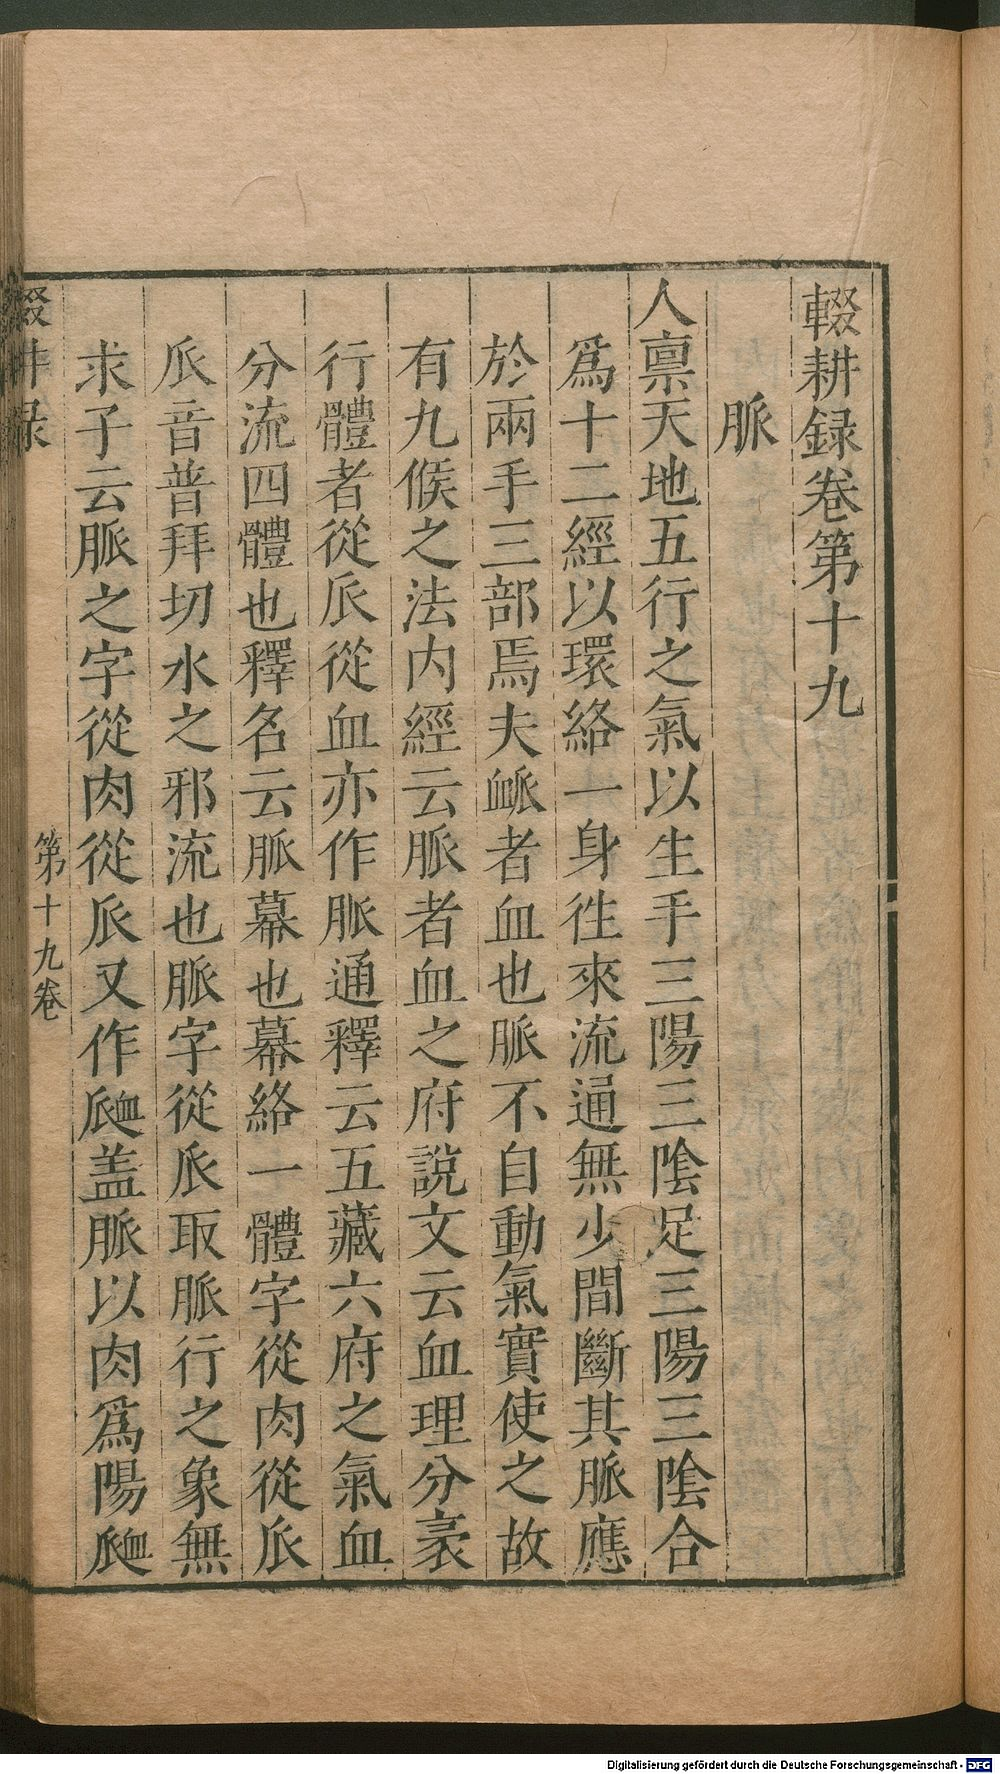 輟耕録卷第十九
脈
人禀天地五行之氣以生手三陽三隂足三陽三隂合
爲十二經以環絡一身徃來流通無少間斷其脈應
於兩手三部焉夫衇者血也脈不自動氣實使之故
有九候之法内經云脈者血之府説文云血理分衺
行體者從𠂢從血亦作脈通釋云五藏六府之氣血
分流四體也釋名云脈幕也幕絡一體字從肉從𠂢
𠂢音普拜切水之邪流也脈字從𠂢取脈行之象無
求子云脈之字從肉從𠂢又作𧖴盖脈以肉爲陽𧖴
輟耕録
第十九卷
Digitalisierung gefördert durch die Deutsche Forschungsgemeinschaft - DFG